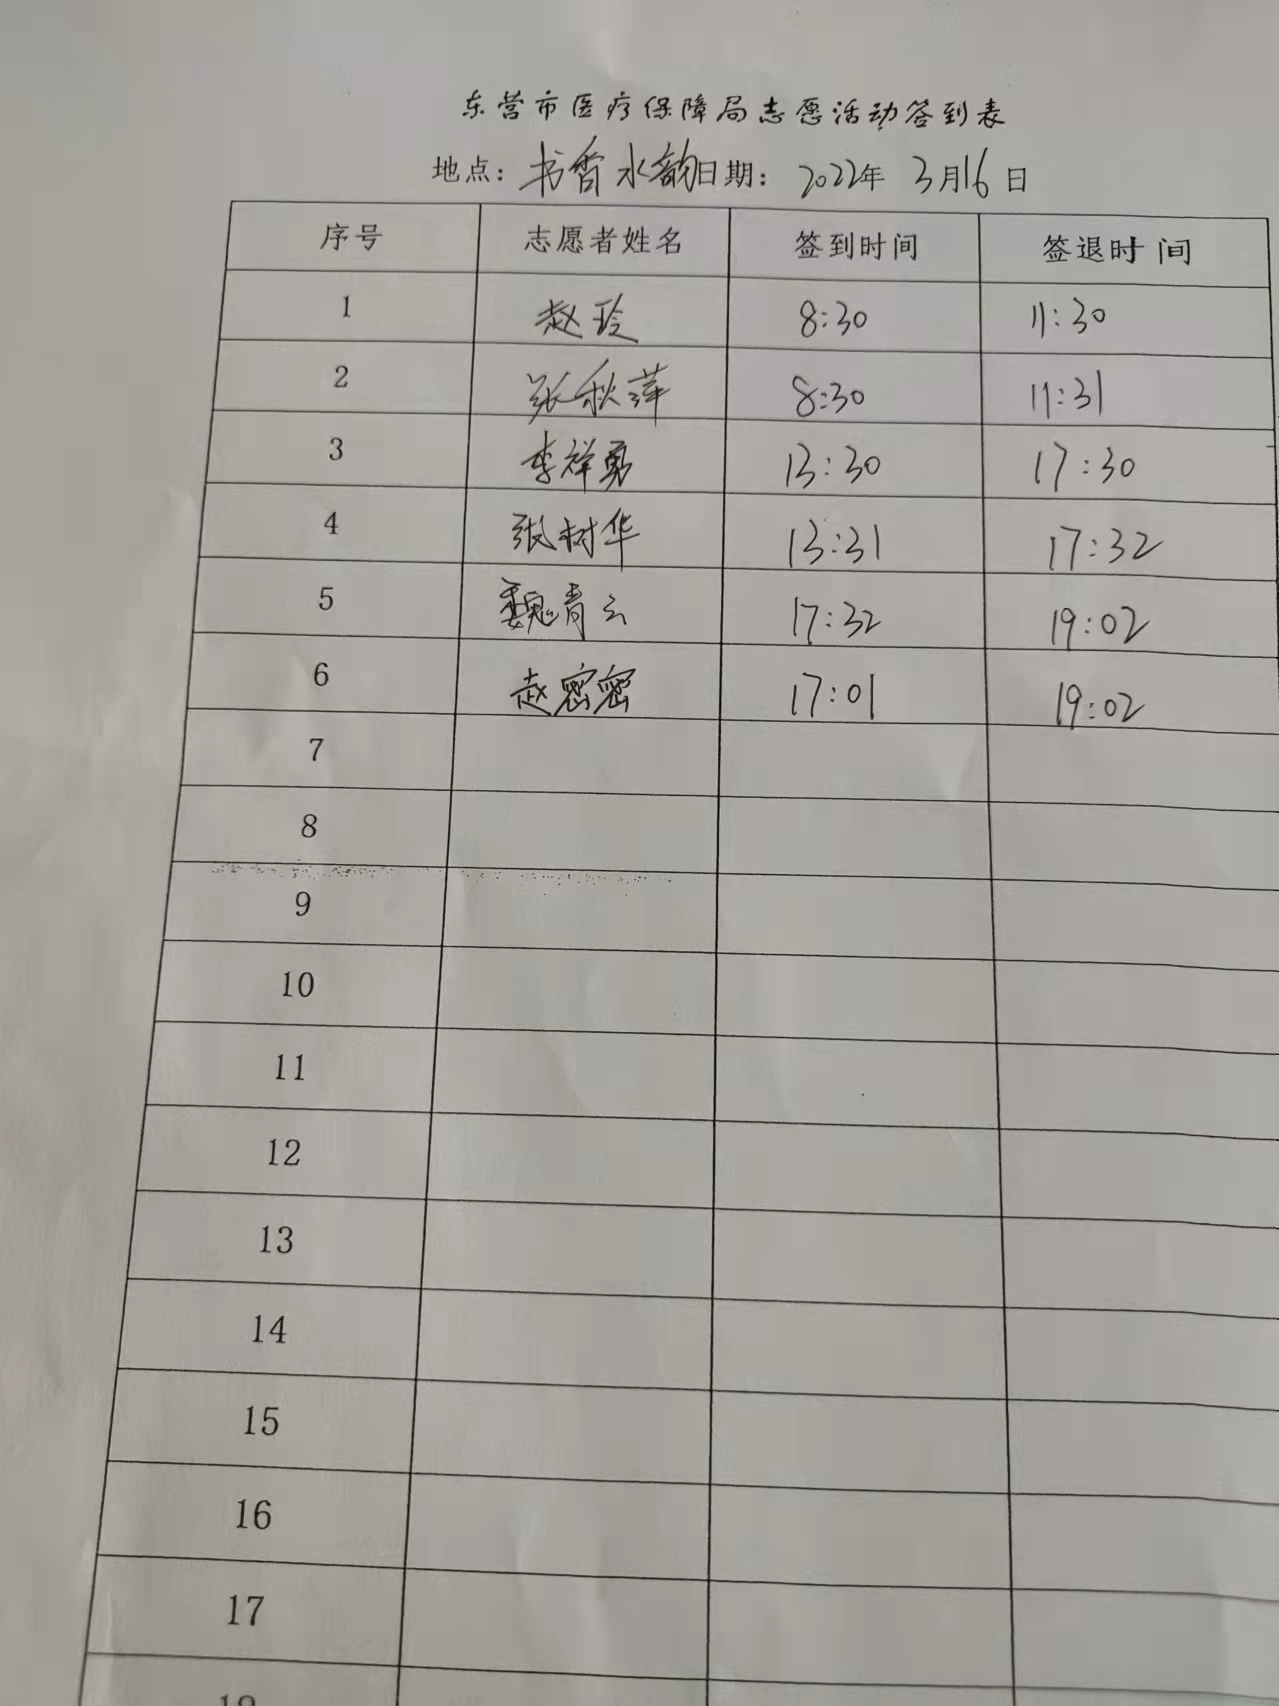 东营市医疗保障局志愿活动签到表
地点：书香水韵日期：2022年 3月16日
序号 志愿者姓名 签到时间 签退时间
1 赵玲 8:30 11:30
2 张秋萍 8:30 11:31
3 李祥勇 13:30 17:30
4 张树华 13:31 17:32
5 魏青云 17:32 19:02
6 赵密密 17:01 19:02
7
8
9
10
11
12
13
14
15
16
17